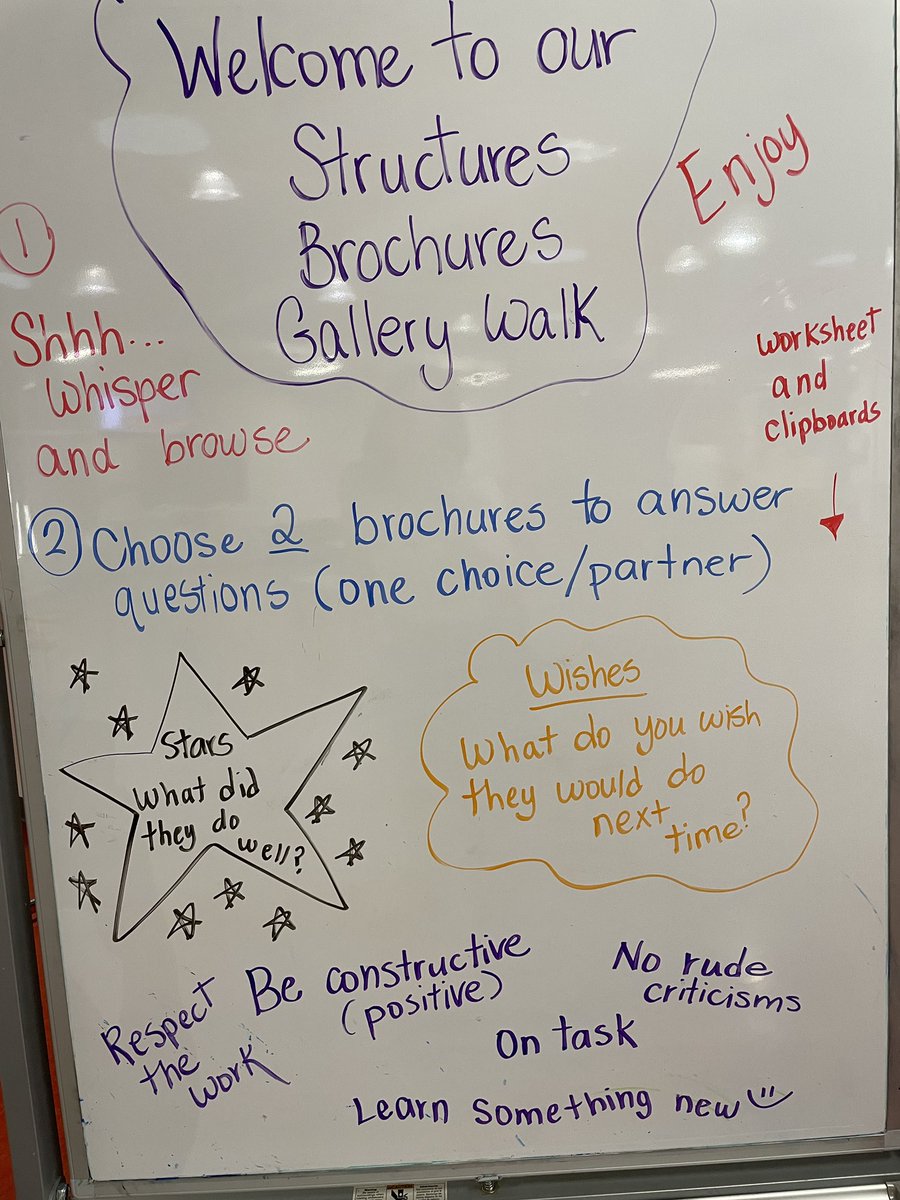 Welcome to our
Structures
Brochures
Gallery Walk
Enjoy
1
Shhh...
Whisper
and browse
worksheet
and
clipboards
2 Choose 2 brochures to answer
questions (one choice/partner)
Stars
What did
they do
well?
Wishes
What do you wish
they would do
next
time?
Respect
the
work
Be constructive
(positive)
No rude
criticisms
On task
Learn something new